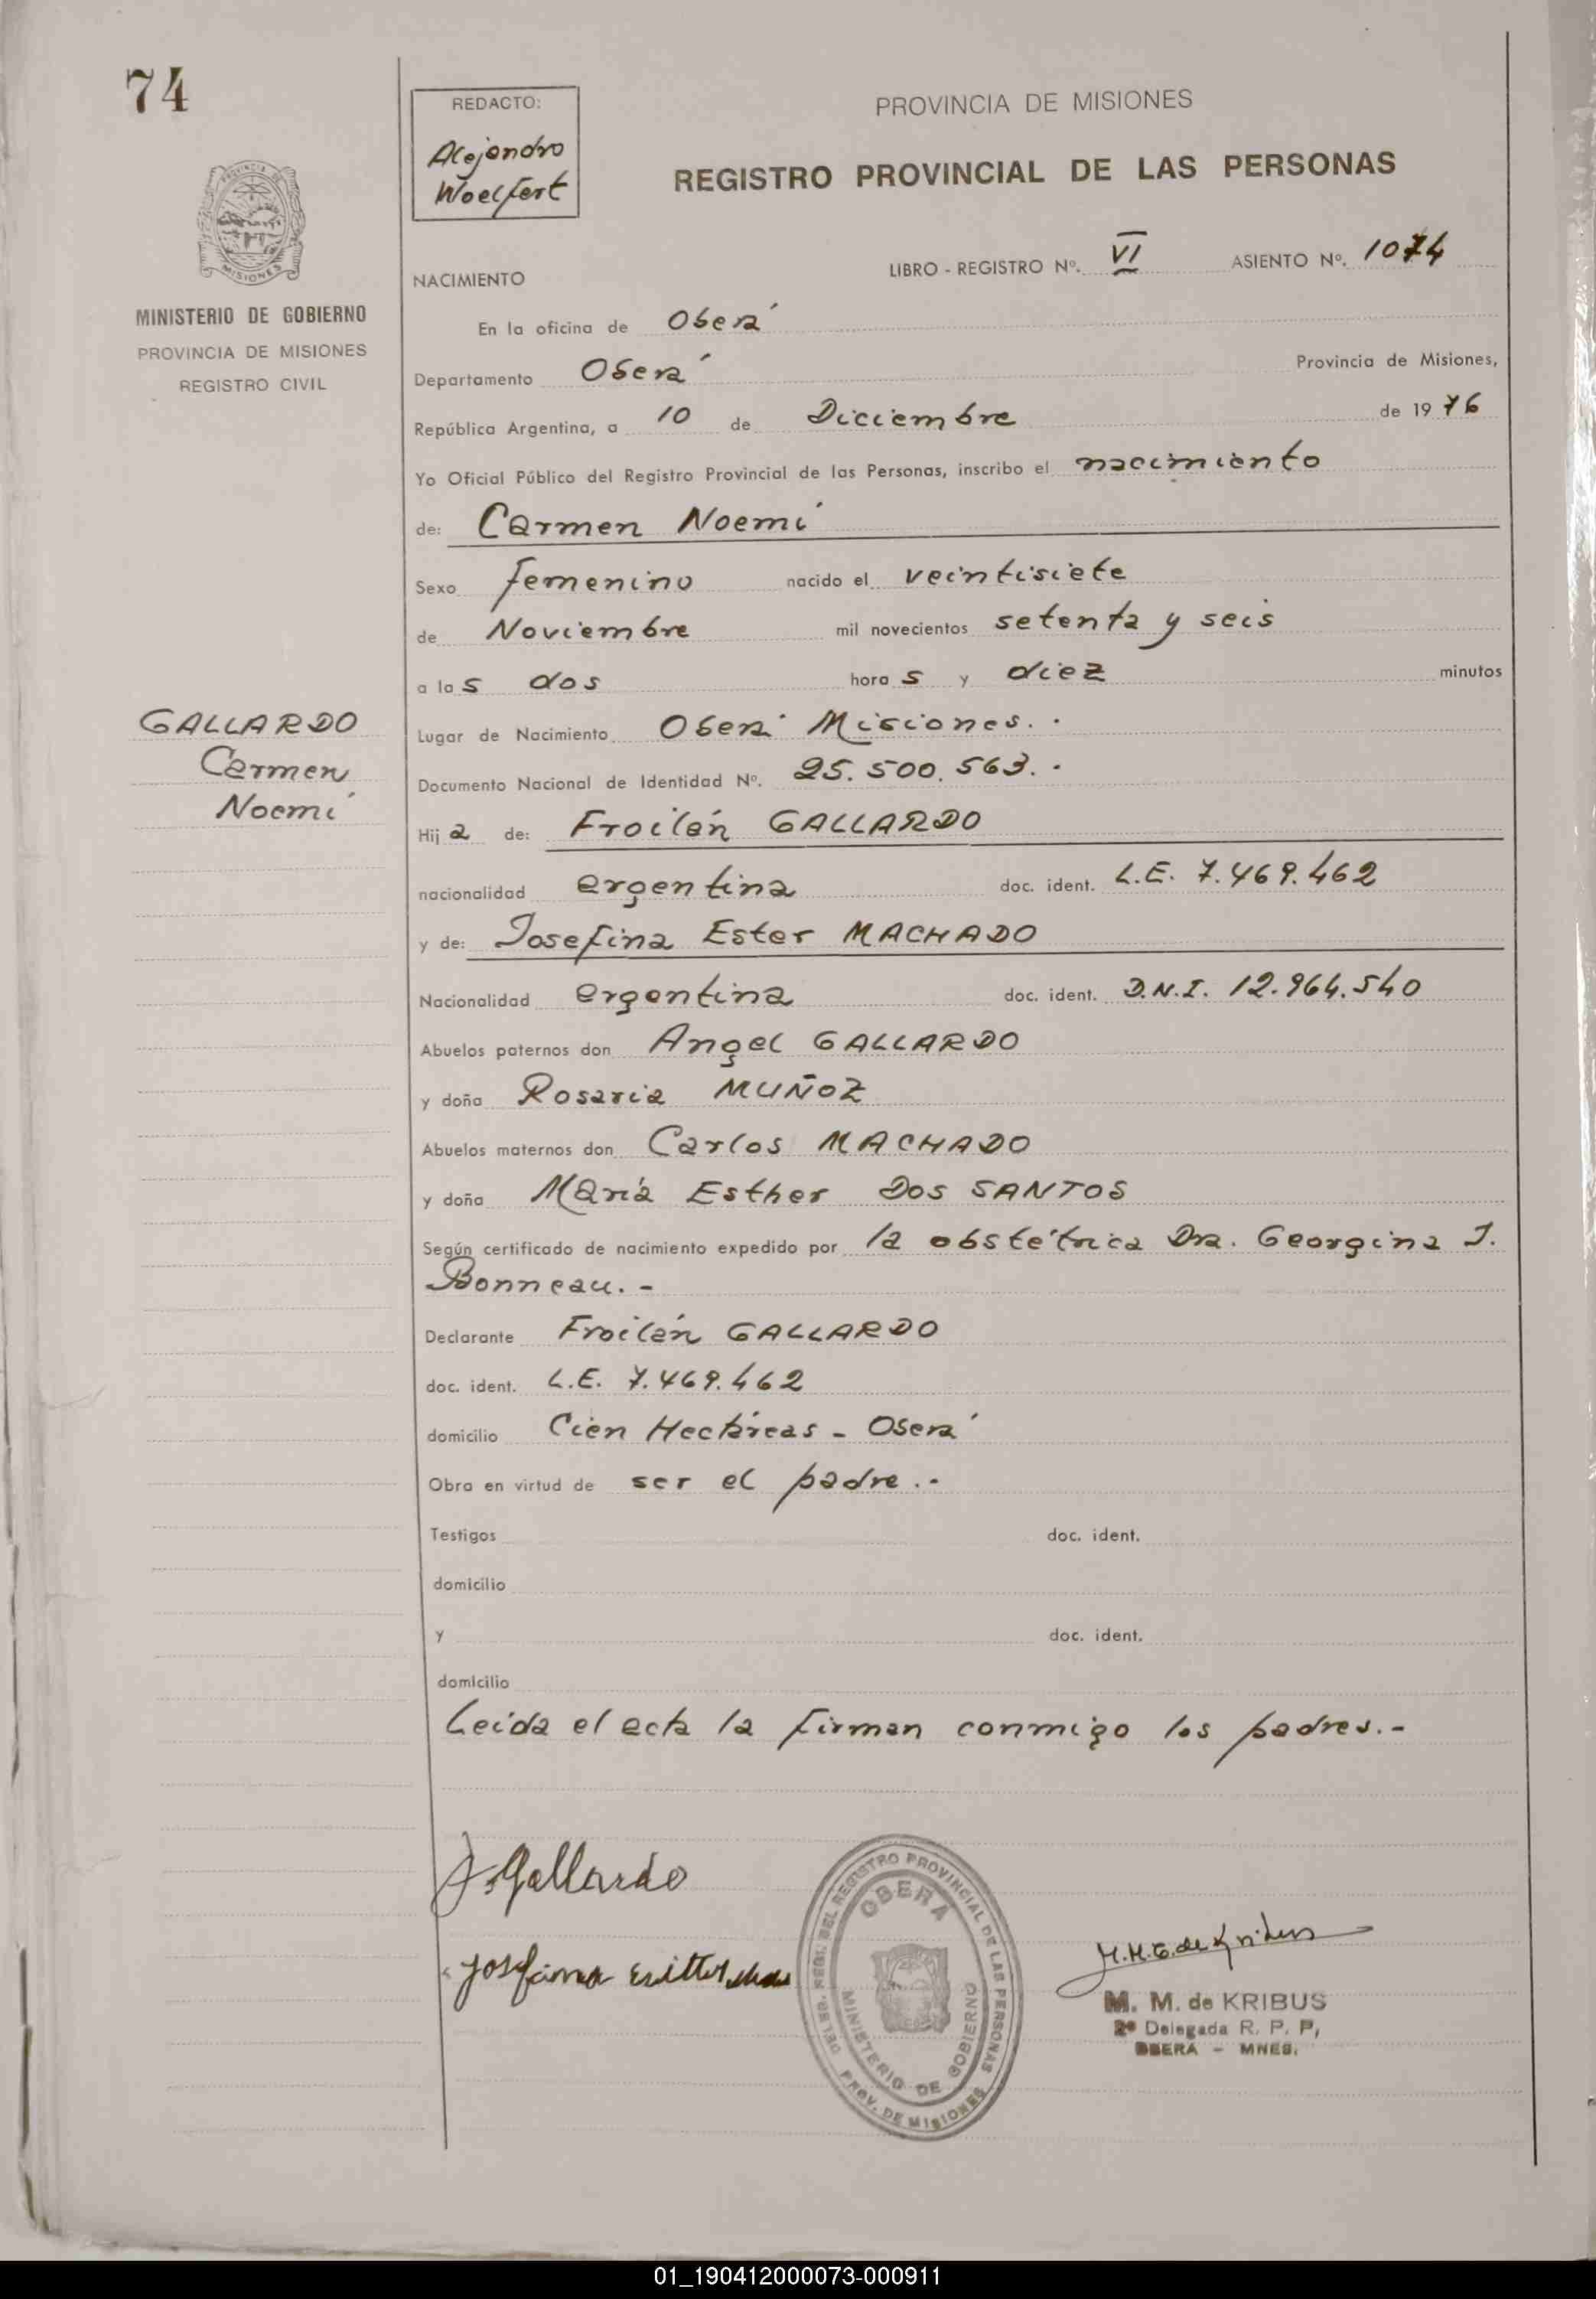 74
REDACTO:
Alejandro
Woelfert
PROVINCIA DE MISIONES
REGISTRO PROVINCIAL DE LAS PERSONAS
MISIONES
MINISTERIO DE GOBIERNO
PROVINCIA DE MISIONES
REGISTRO CIVIL
NACIMIENTO LIBRO - REGISTRO Nº. VI ASIENTO Nº. 1074
En la oficina de Oberá
Departamento Oberá Provincia de Misiones,
República Argentina, a 10 de Diciembre de 1976
Yo Oficial Público del Registro Provincial de las Personas, inscribo el nacimiento
de: Carmen Noemí
Sexo femenino nacido el veintisiete
de Noviembre mil novecientos setenta y seis
a las dos horas y diez minutos
GALLARDO
Carmen
Noemí
Lugar de Nacimiento Oberá Misiones. .
Documento Nacional de Identidad Nº. 25.500.563. -
Hija de: Froilán GALLARDO
nacionalidad argentina doc. ident. L.E. 7.469.462
y de: Josefina Ester MACHADO
Nacionalidad argentina doc. ident. D.N.I. 12.964.540
Abuelos paternos don Angel GALLARDO
y doña Rosaria MUÑOZ
Abuelos maternos don Carlos MACHADO
y doña María Esther Dos SANTOS
Según certificado de nacimiento expedido por la obstétrica Dra. Georgina J.
Bonneau. -
Declarante Froilán GALLARDO
doc. ident. L.E. 7.469.462
domicilio Cien Hectáreas - Oberá
Obra en virtud de ser el padre .-
Testigos doc. ident.
domicilio
y doc. ident.
domicilio
Leída el acta la firman conmigo los padres.-
F. Gallardo
Josefina
DELEG. REGI. DEL REGISTRO PROVINCIAL DE LAS PERSONAS
OBERA
MINISTERIO DE GOBIERNO
PROV. DE MISIONES
M.M.G. de Kribus
M. M. de KRIBUS
2ª Delegada R. P. P,
OBERA - MNES.
01_190412000073-000911